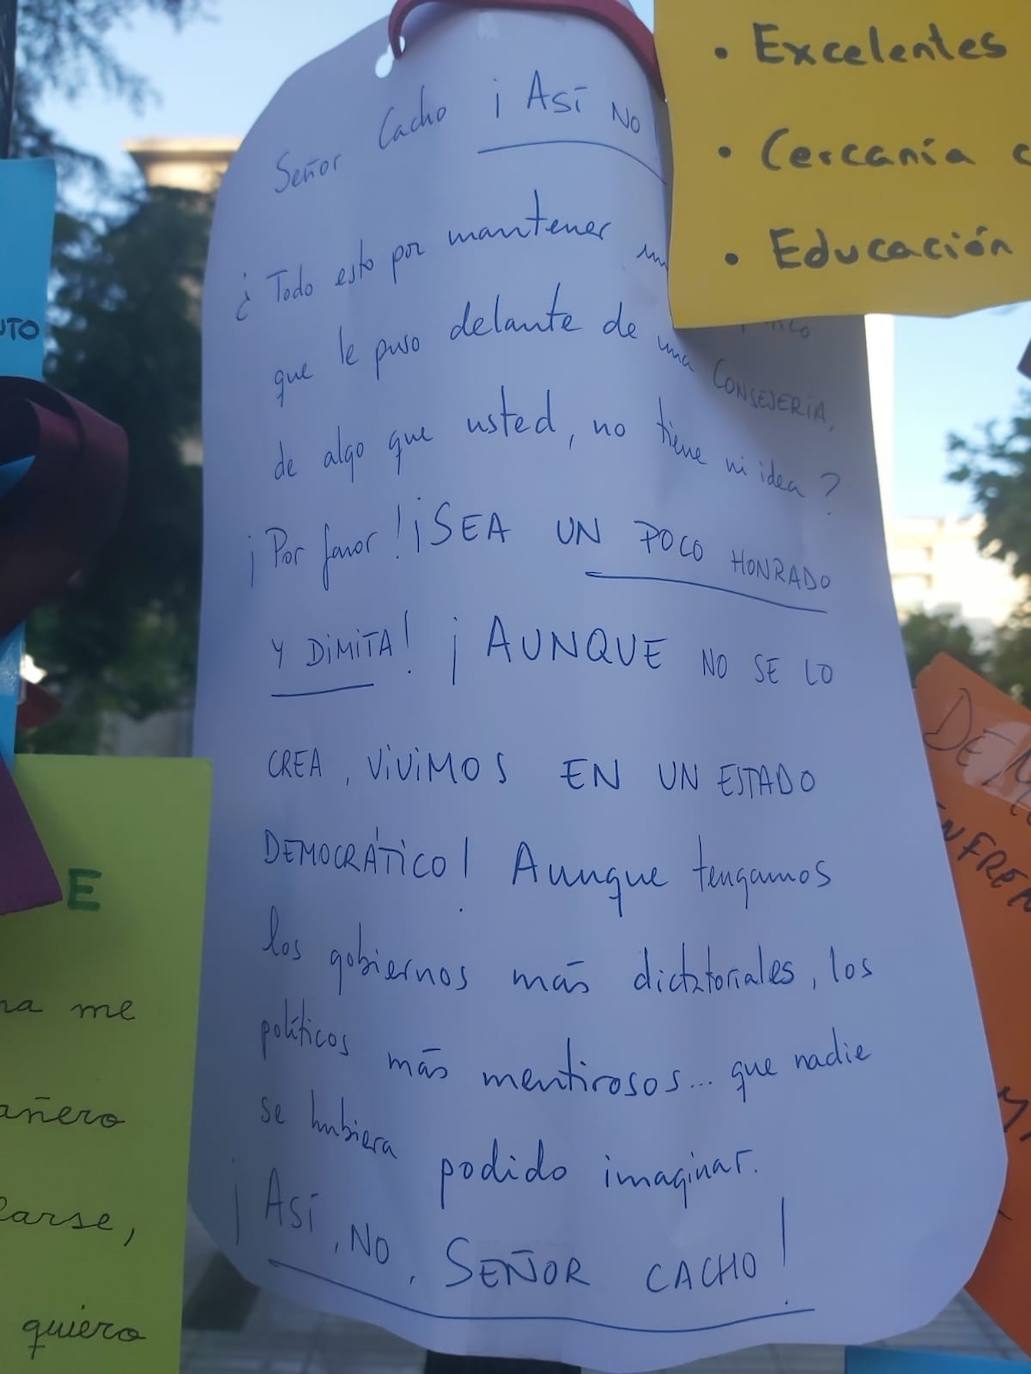 Señor Cacho ¡Así NO
¿Todo esto por mantener
que le puso delante de una CONSEJERIA,
de algo que usted, no tiene ni idea?
¡Por favor! ¡SEA UN POCO HONRADO
Y DIMITA! ¡AUNQUE NO SE LO
CREA, VIVIMOS EN UN ESTADO
DEMOCRÁTICO! Aunque tengamos
los gobiernos más dictatoriales, los
políticos más mentirosos... que nadie
se hubiera podido imaginar.
¡Así, NO, SEÑOR CACHO!
• Excelentes
• Cercanía
• Educación
UTO
E
na me
añero
larse,
quiero
ENFREN